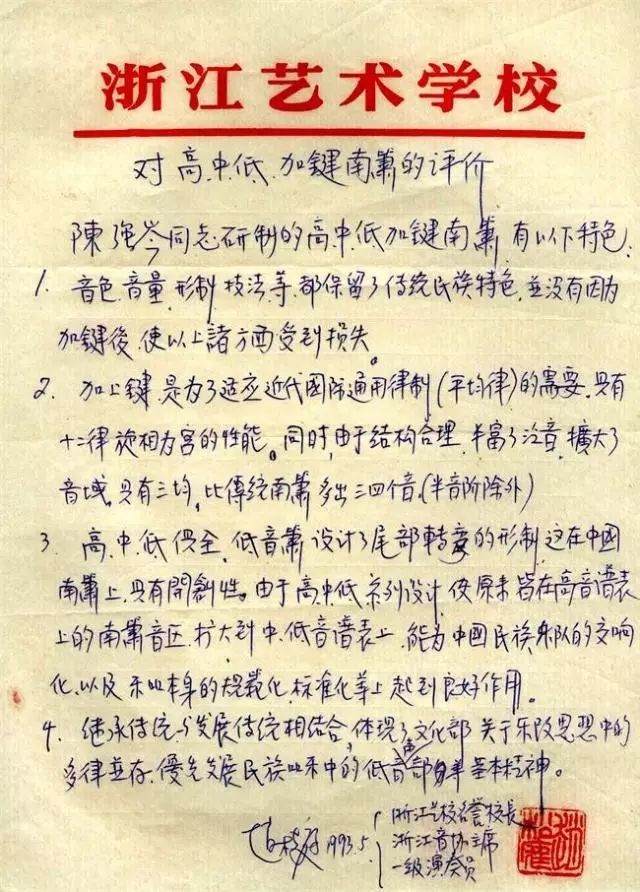 浙江艺术学校
对高、中、低、加键南箫的评价
陳强岑同志研制的高中低加键南箫,有以下特色:
1. 音色、音量、形制、技法等,都保留了传统民族特色,並没有因为
加键後,使以上諸方面受到损失。
2. 加上键,是为了适应近代國际通用律制(平均律)的需要,具有
十二律旋相为宫的性能。同时,由于结构合理,丰富了泛音,擴大了
音域,具有三均,比傳統南箫多出三四倍。(半音阶除外)
3. 高、中、低俱全,低音箫设计了尾部轉彎的形制,这在中國
南箫上,具有開創性。由于高、中、低系列设计,使原来皆在高音谱表
上的南箫音区,扩大到中、低音谱表上,能为中國民族乐队的交响
化,以及乐四本身的规范化、标准化等上起到良好作用。
4. 继承传统与发展传统相结合,体现了文化部关于乐改思想中的
多律並存、優先发展民族吹乐中的低音声部等基本精神。
1993.5.
浙江艺校名誉校長
浙江音协主席
一级演奏员